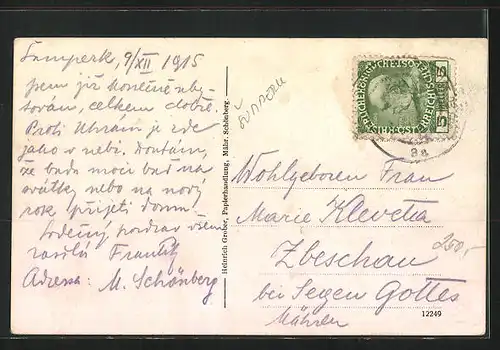 Šumperk, 9/XII 1915
jsem již konečně uby-
tován, celkem dobře.
Proti Uhrám je zde
jako v nebi. Doufám,
že budu moci buď na
svátky nebo na nový
rok přijeti domů.
Srdečný pozdrav všem
zasílá František
Adressa: M. Schönberg
Heinrich Grober, Papierhandlung, Mähr. Schönberg.
ŠUMPERK
5 5
8a
Wohlgeboren Frau
Marie Klevetta
Zbeschau
bei Segen Gottes
Mähren
200,-
12249